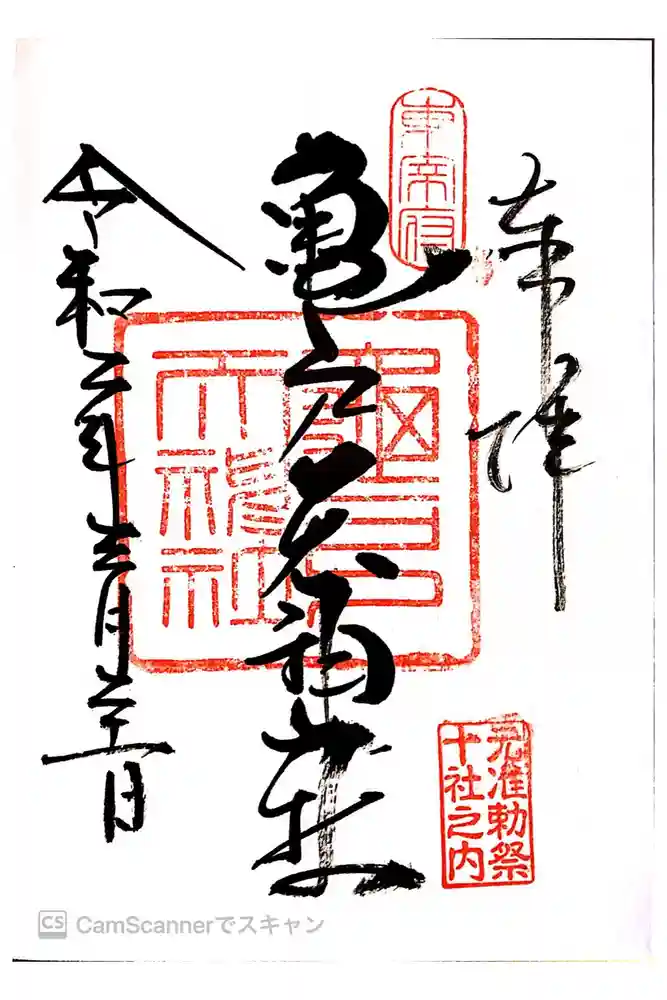 奉拝
東宰府
亀戸天神社
元准勅祭
十社之内
令和二年
月
日
CamScannerでスキャン